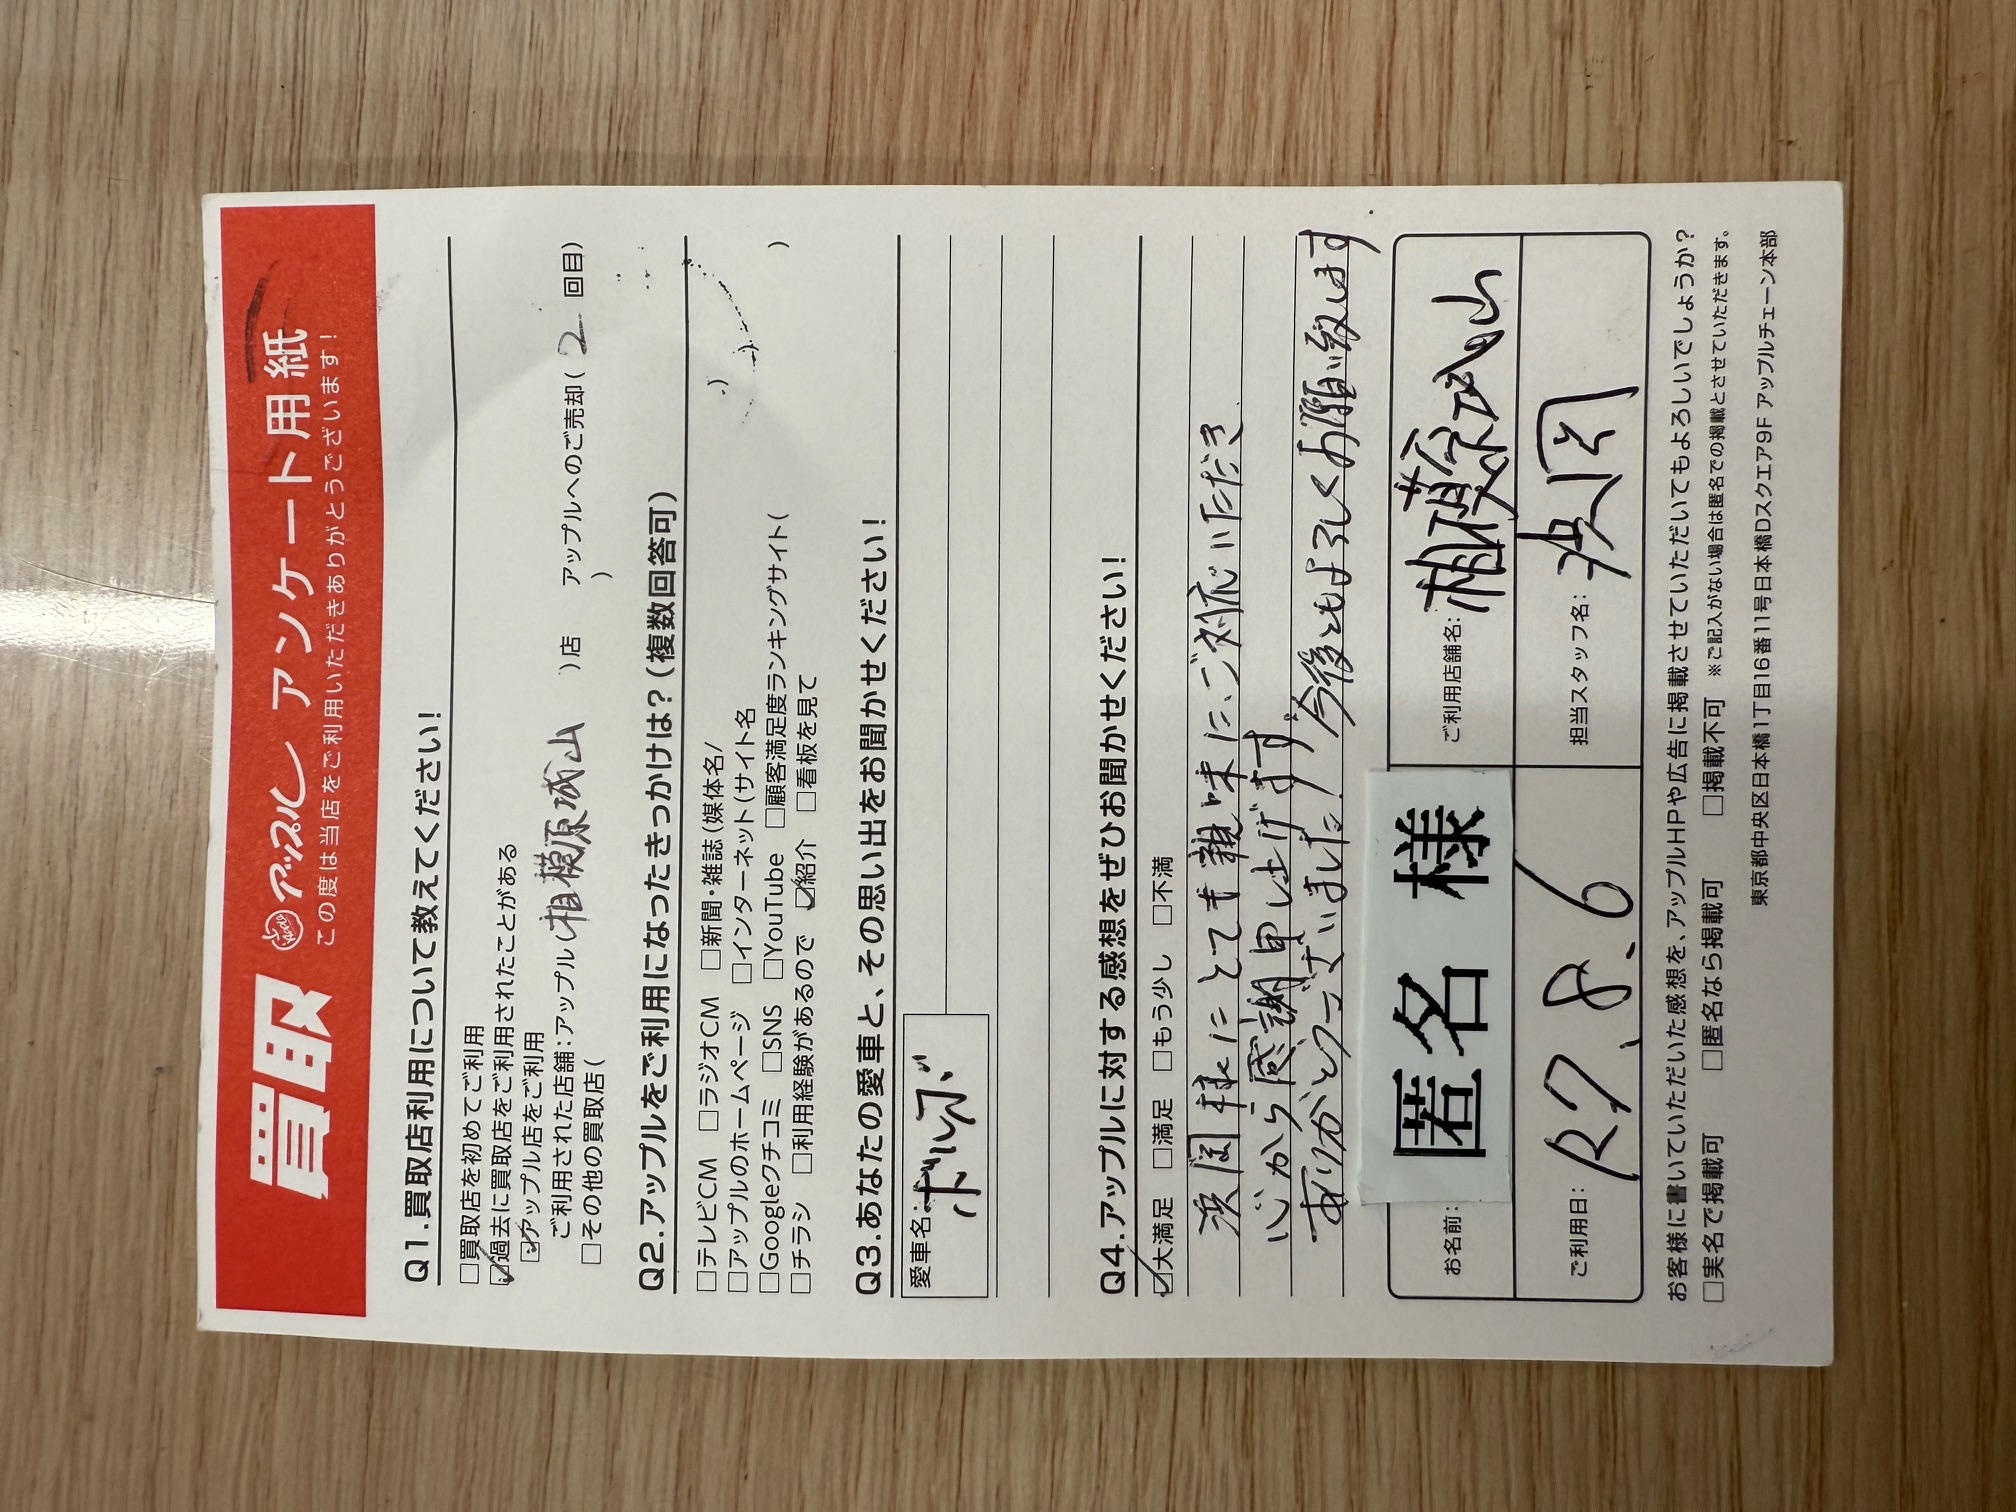 買取 アップル アンケート用紙
この度は当店をご利用いただきありがとうございます!
Q1.買取店利用について教えてください!
□買取店を初めてご利用
☑過去に買取店をご利用されたことがある
☑アップル店をご利用
ご利用された店舗:アップル(相模原城山 )店 アップルへのご売却( 2 回目)
□その他の買取店( )
Q2.アップルをご利用になったきっかけは?(複数回答可)
□テレビCM □ラジオCM □新聞・雑誌(媒体名/ )
□アップルのホームページ □インターネット(サイト名 )
□Googleクチコミ □SNS □YouTube □顧客満足度ランキングサイト( )
□チラシ □利用経験があるので ☑紹介 □看板を見て
Q3.あなたの愛車と、その思い出をお聞かせください!
愛車名:ボルボ
Q4.アップルに対する感想をぜひお聞かせください!
☑大満足 □満足 □もう少し □不満
浜岡様にとても親味に、ご対応いただき
心から感謝申し上げます。
ありがとうございました! 今後ともよろしくお願い致します
お名前: 匿名 様
ご利用店舗名: 相模原城山
ご利用日: R7.8.6
担当スタッフ名: 浜岡
お客様に書いていただいた感想を、アップルHPや広告に掲載させていただいてもよろしいでしょうか?
□実名で掲載可 □匿名なら掲載可 □掲載不可 ※ご記入がない場合は匿名での掲載とさせていただきます。
東京都中央区日本橋1丁目16番11号日本橋Dスクエア9F アップルチェーン本部